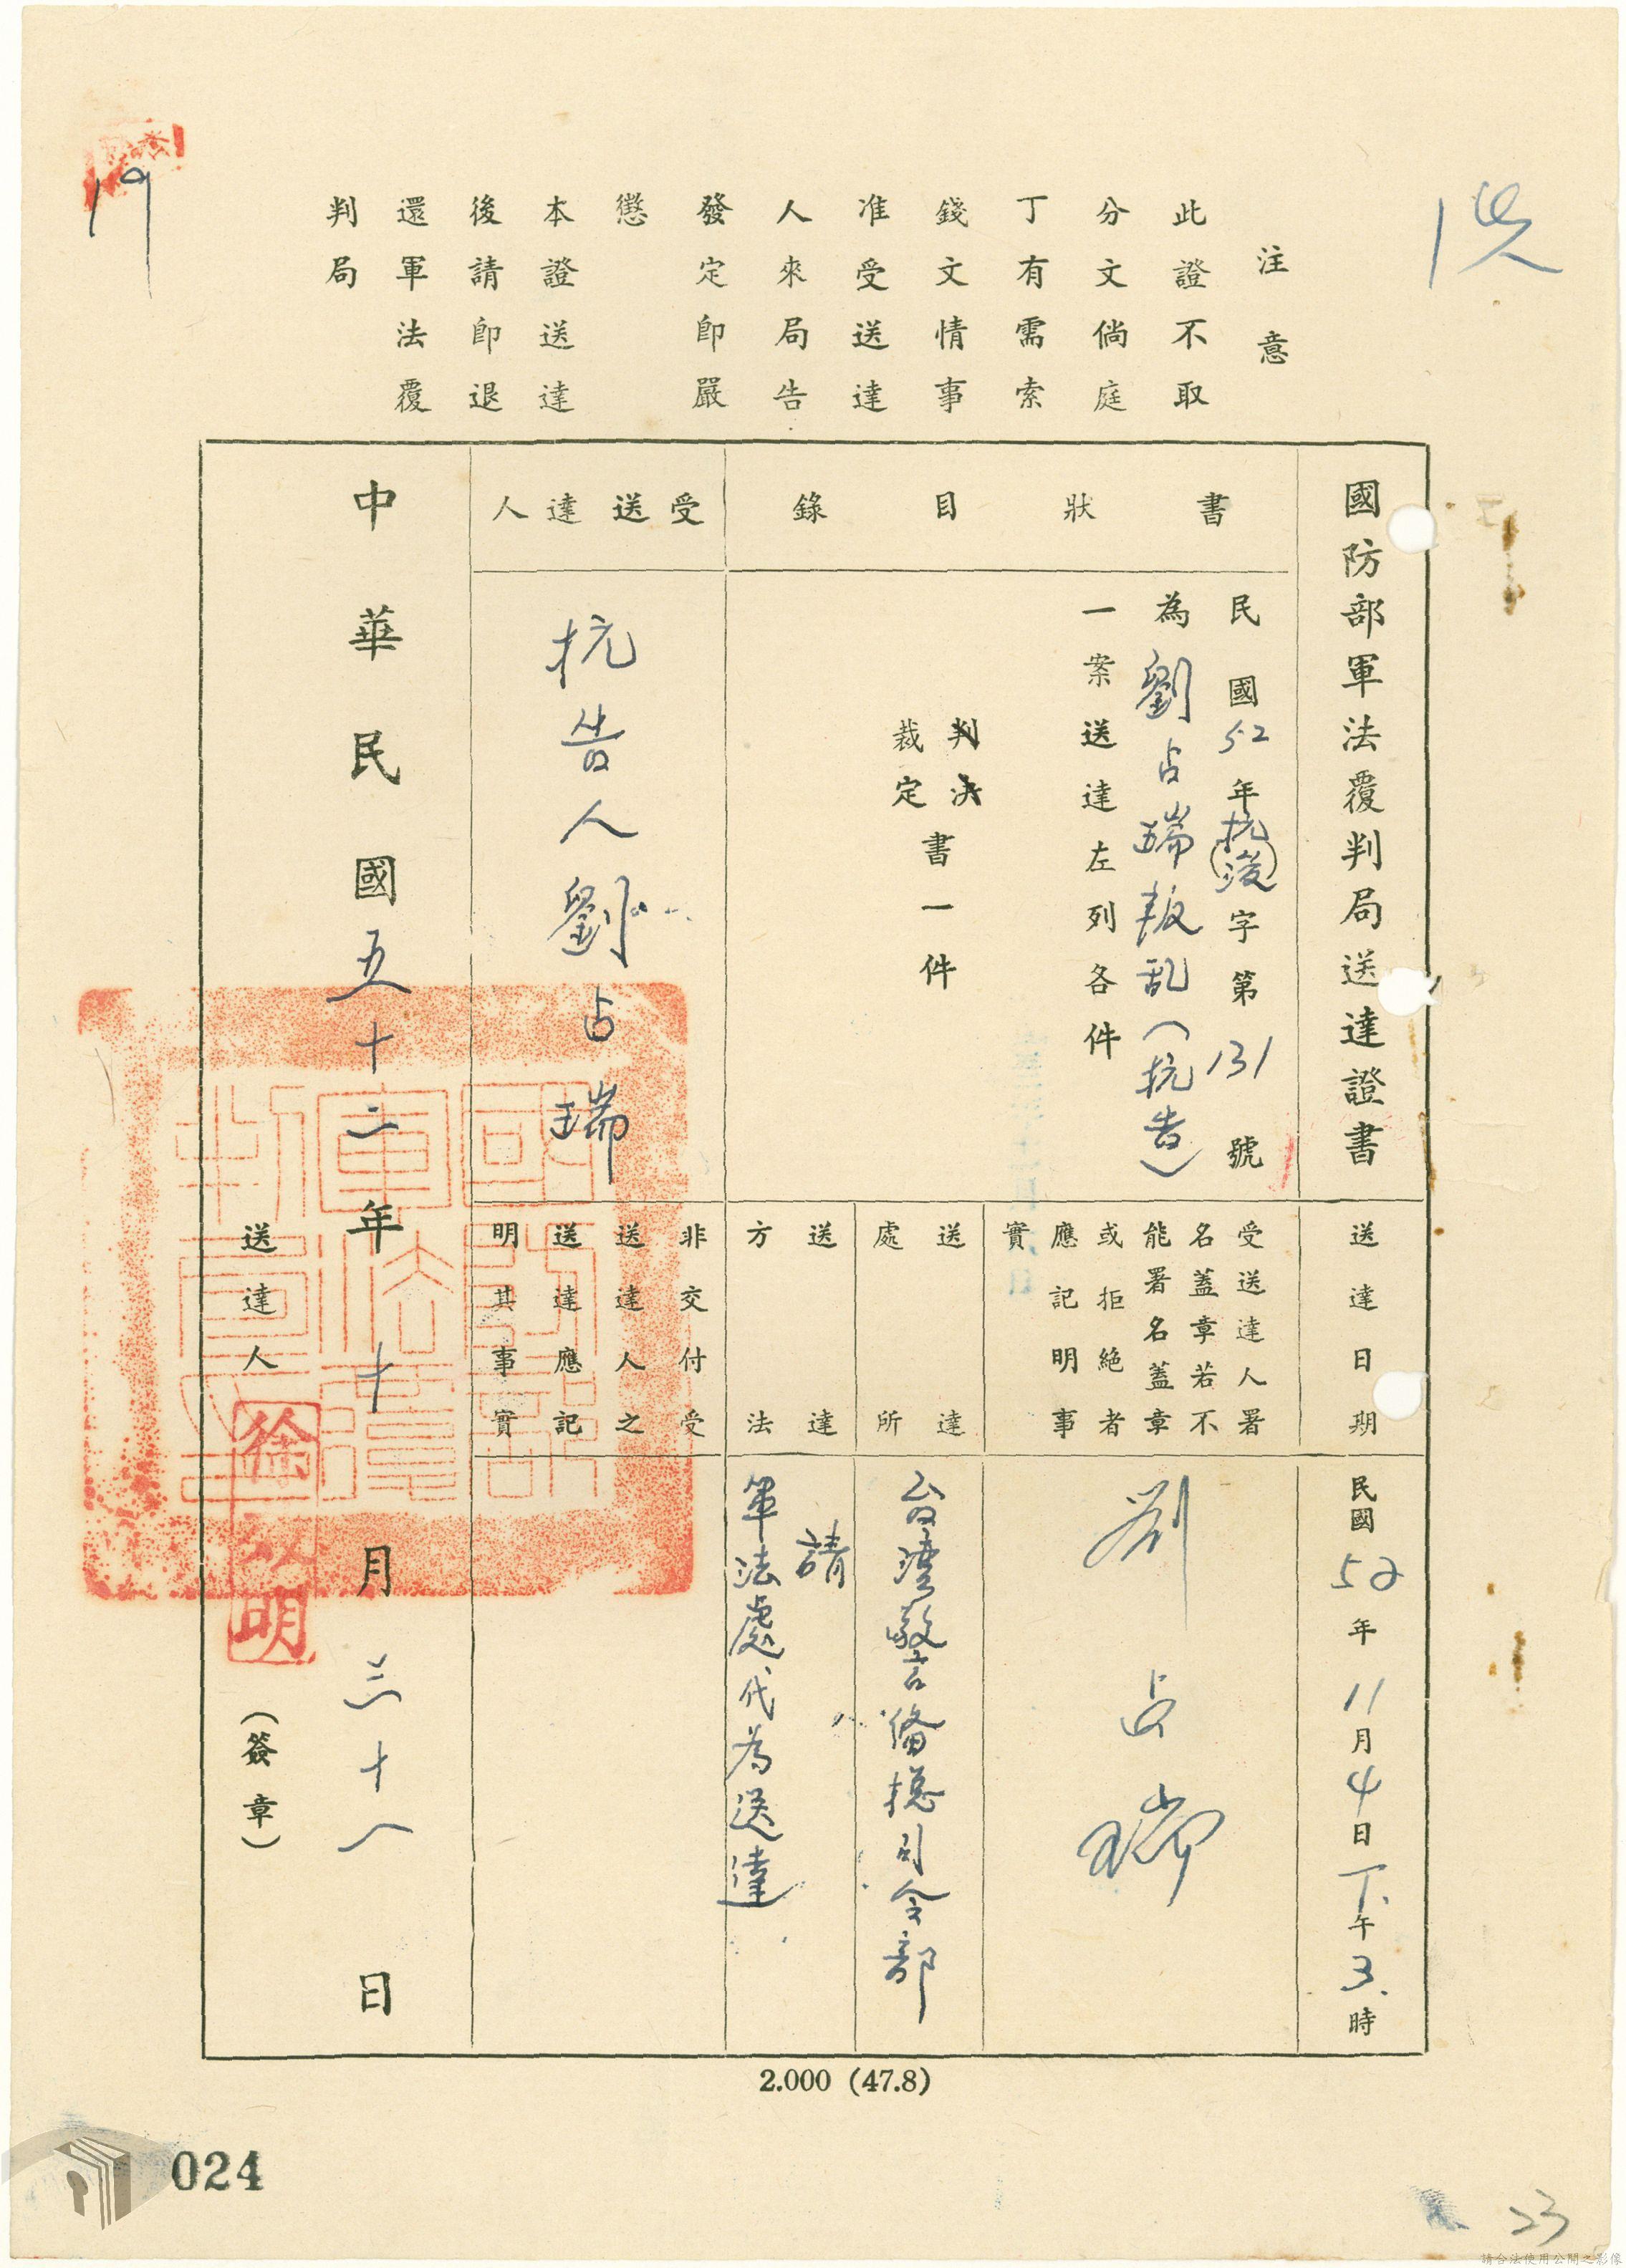 19
注意
此證不取
分文倘庭
丁有需索
錢文情事
准受送達
人來局告
發定即嚴
懲
本證送達
後請即退
還軍法覆
判局
國防部軍法覆判局送達證書
書狀目錄
民國52年抗(浚)字第131號
為劉占瑞叛乱(抗告)
一案送達左列各件
判決
裁定
書一件
受送達人
抗告人劉占瑞
送達日期
民國52年11月4日下午3時
受送達人署
名蓋章若不
能署名蓋章
或拒絕者
應記明事
實
劉占瑞
送達
處所
台灣警备總司令部
送達
方法
請
軍法處代為送達
非交付受
送達人之
送達應記
明其事實
中華民國五十二年十月三十一日
送達人
(簽章)
2.000 (47.8)
024
23
請合法使用公開之影像